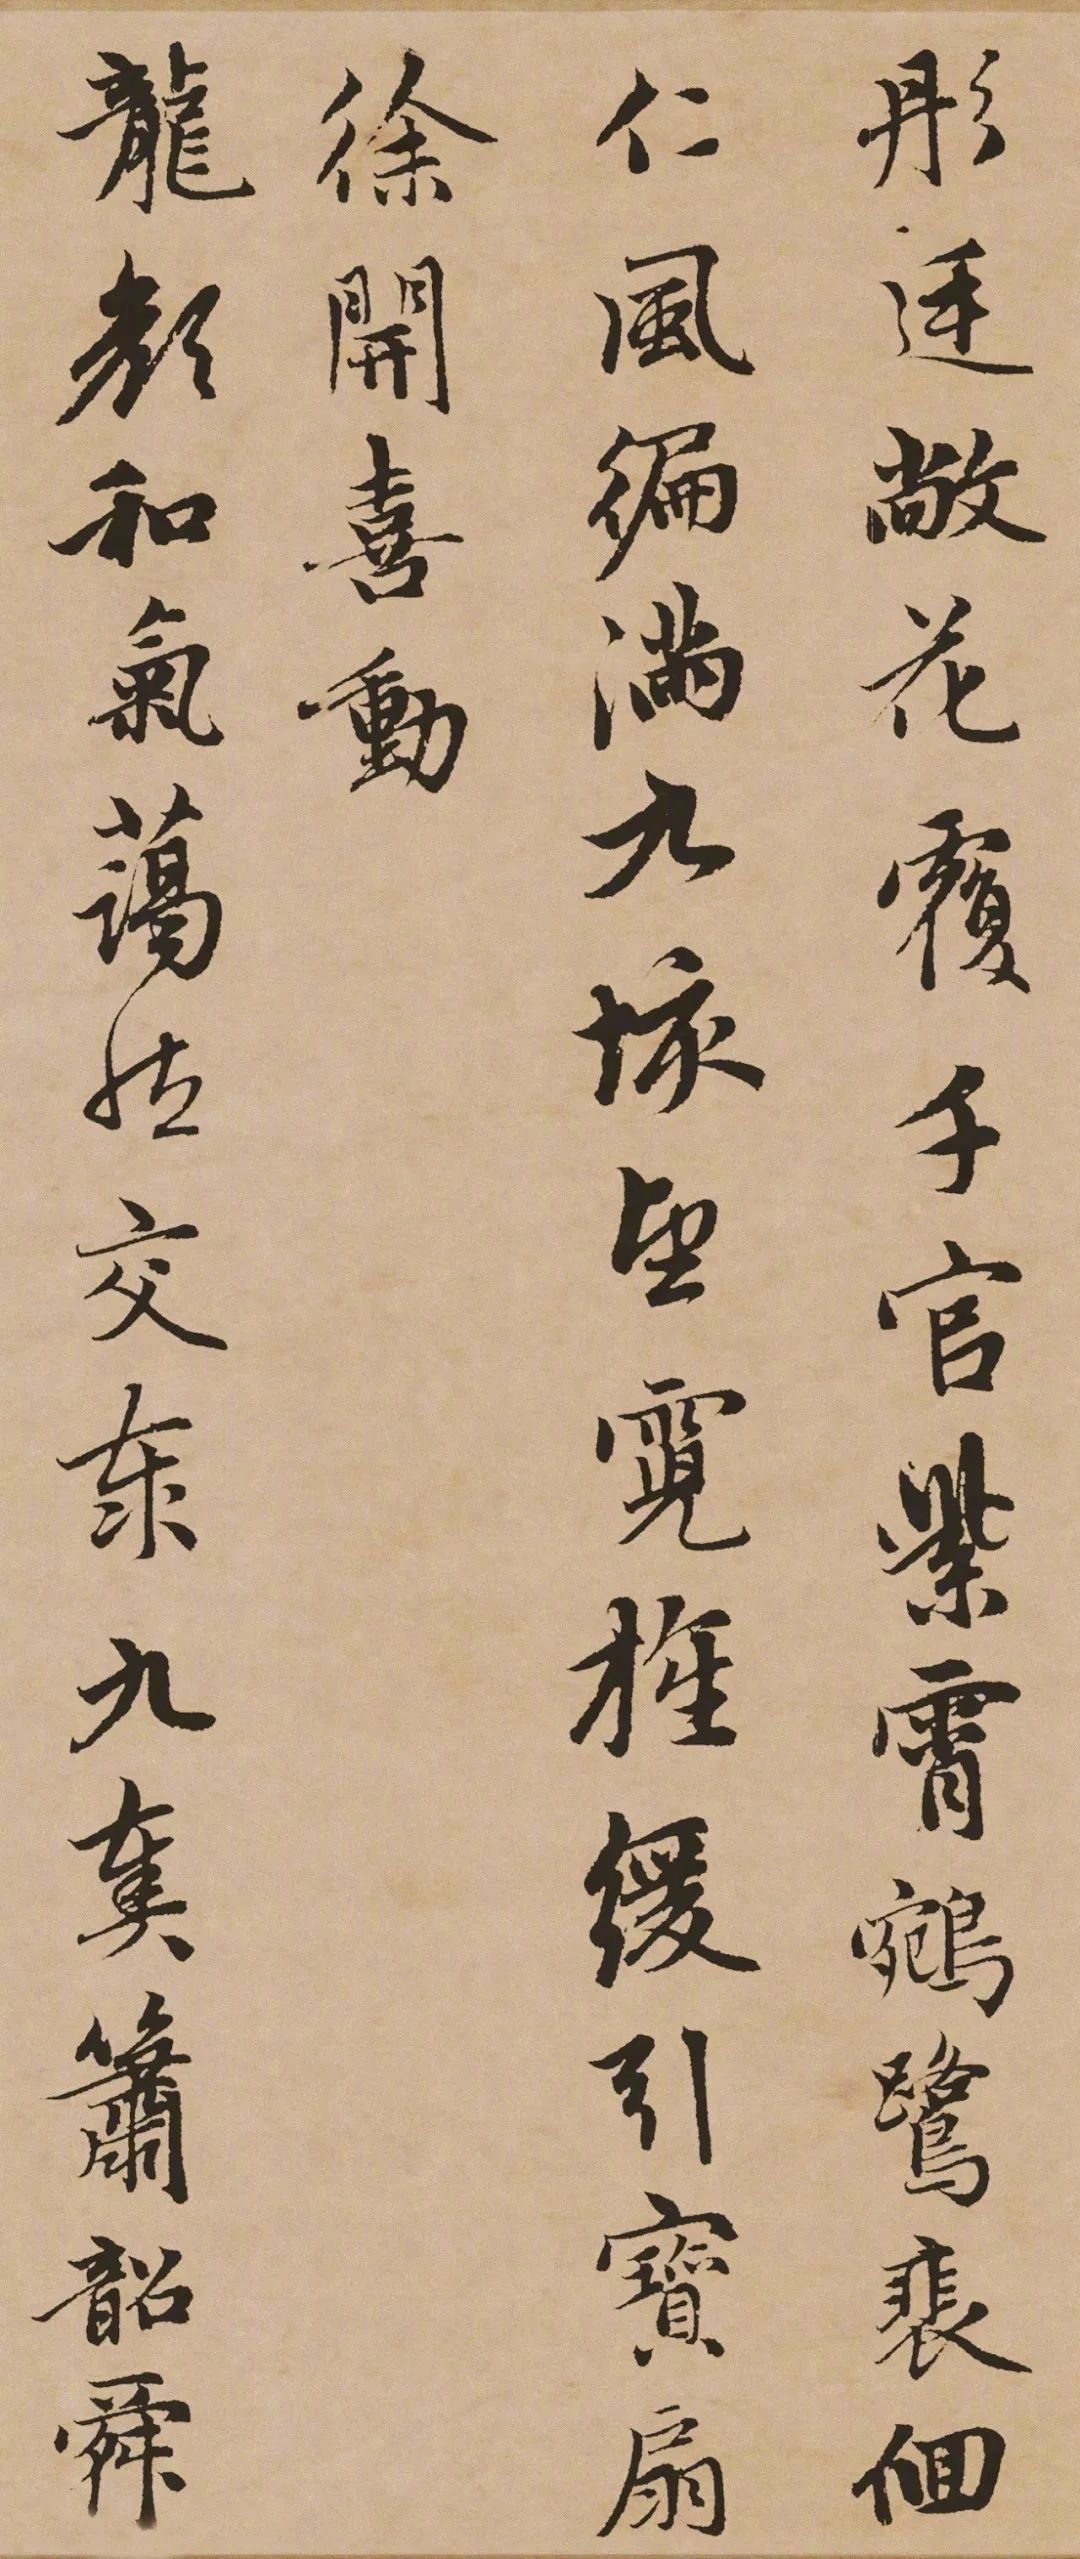 彤廷敞花覆千官紫霄鵷鷺裴佪
仁風徧滿九垓望霓旌緩引寶扇
徐開喜動
龍顏和氣藹然交泰九奏簫韶舜